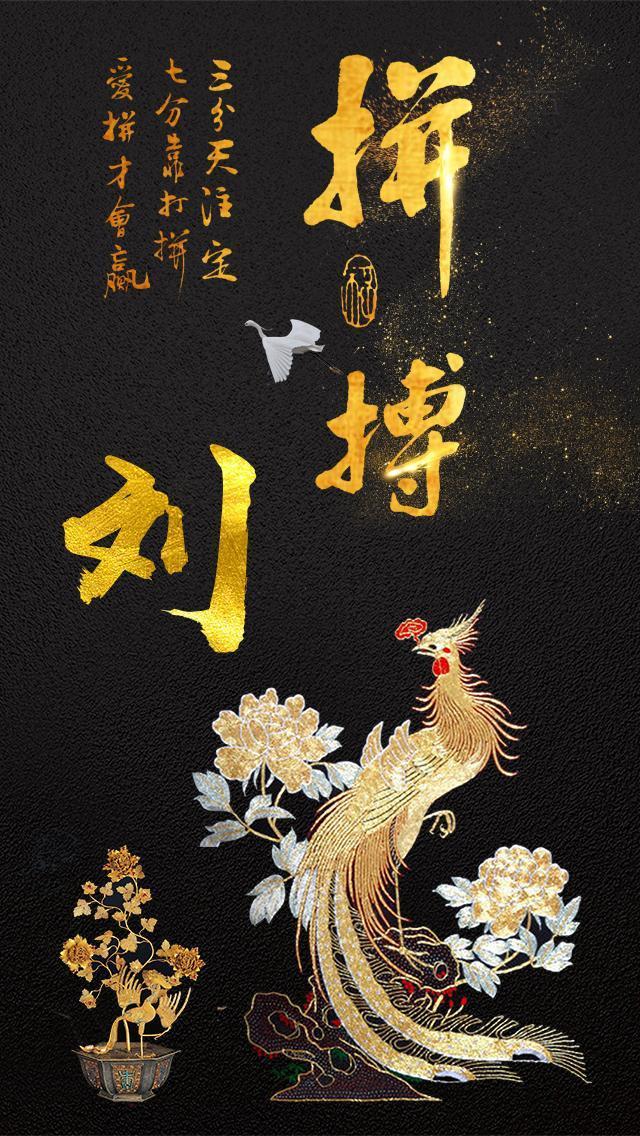 拼搏
三分天注定
七分靠打拼
愛拼才會贏
刘